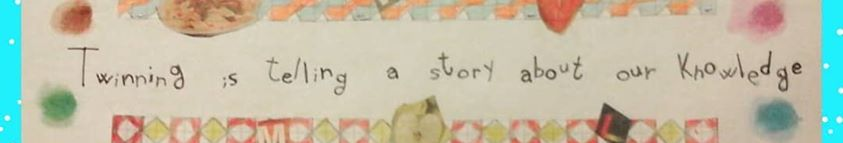 Twinning is telling a story about our Knowledge
M
L